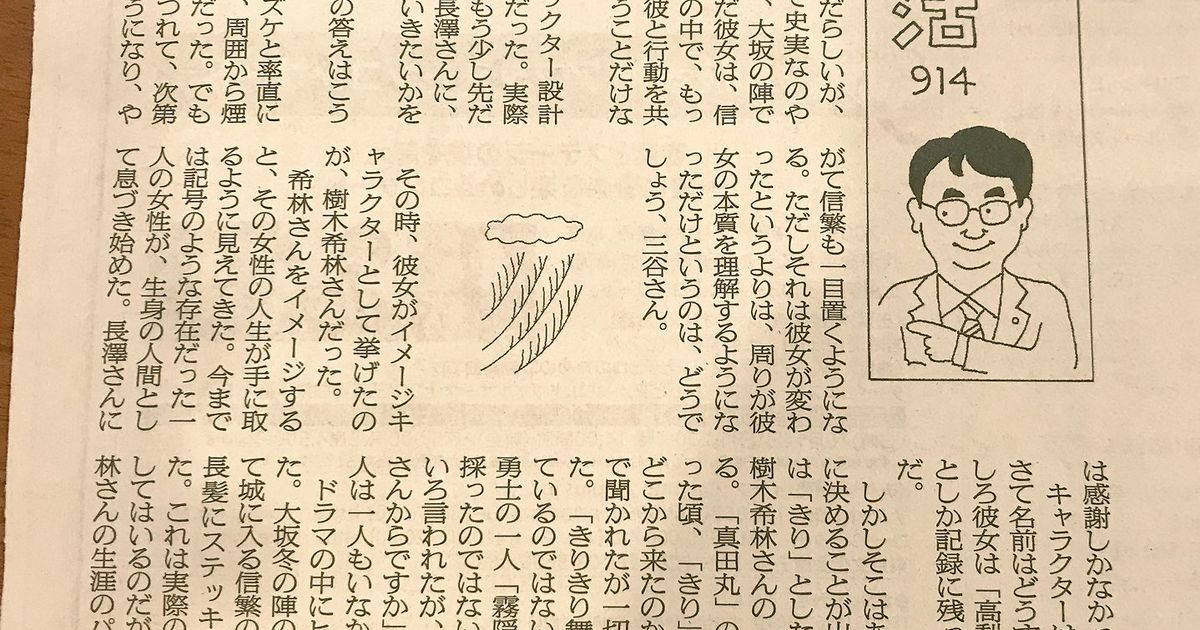 活
914
だらしいが、
て史実なのや
、大坂の陣で
だ彼女は、信
の中で、もっ
彼と行動を共
うことだけな
ラクター設計
だった。実際
もう少し先だ
長澤さんに、
いきたいかを
の答えはこう
ズケと率直に
、周囲から煙
だった。でも
つれて、次第
うになり、や
がて信繁も一目置くようにな
る。ただしそれは彼女が変わ
ったというよりは、周りが彼
女の本質を理解するようにな
っただけというのは、どうで
しょう、三谷さん。
その時、彼女がイメージキ
ャラクターとして挙げたの
が、樹木希林さんだった。
希林さんをイメージする
と、その女性の人生が手に取
るように見えてきた。今まで
は記号のような存在だった一
人の女性が、生身の人間とし
て息づき始めた。長澤さんに
は感謝しかなか
キャラクターは
さて名前はどうす
しろ彼女は「高梨
としか記録に残
だ。
しかしそこはあ
に決めることが出
は「きり」とした
樹木希林さんの
る。「真田丸」の
った頃、「きり」
どこから来たのか
で聞かれたが一切
た。「きりきり舞
ているのではない
勇士の一人「霧隠
採ったのではない
いろ言われたが、
さんからですか」
人は一人もいなか
ドラマの中にヒ
た。大坂冬の陣の
て城に入る信繁の
長髪にステッキ
た。これは実際の
してはいるのだが
林さんの生涯のパ